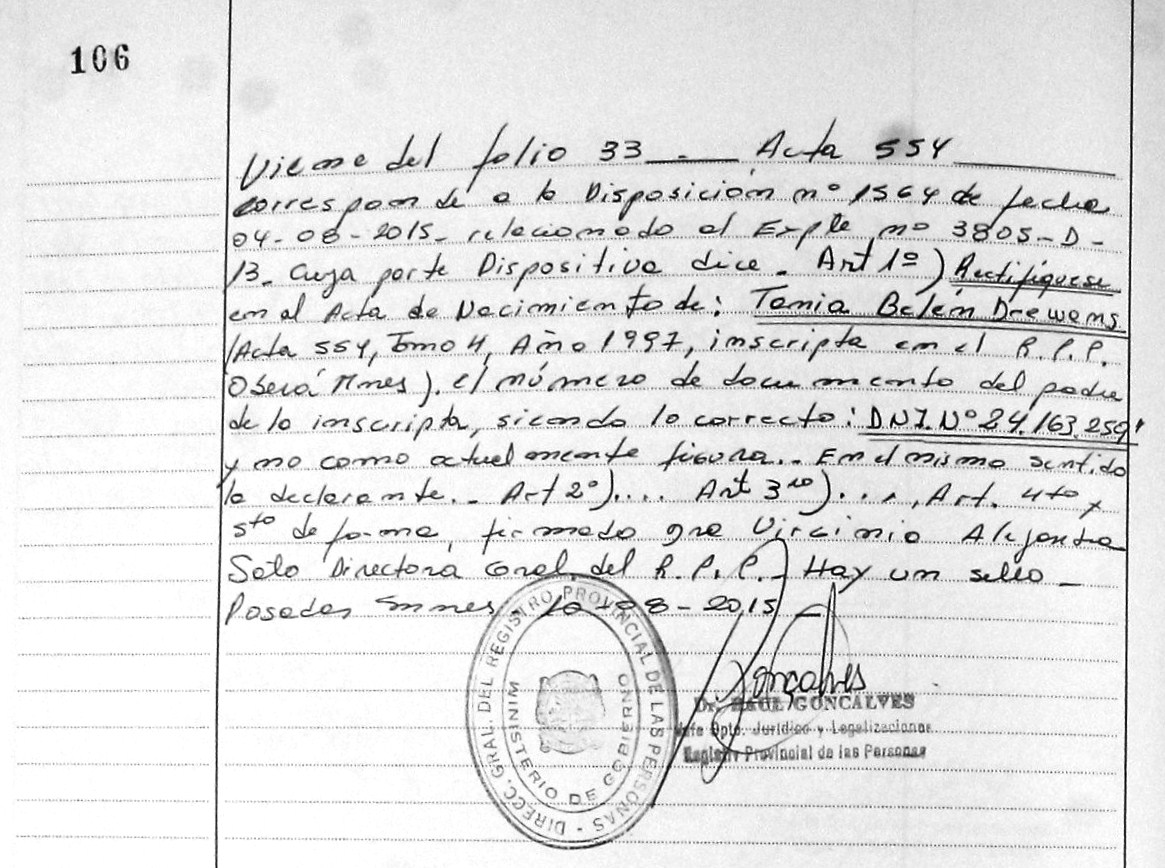 106
Viene del folio 33 _ . _ Acta 554
corresponde a la Disposición nº 1564 de fecha
04-08-2015- relacionado al Expte nº 3805-D-
13. Cuya parte Dispositiva dice. Art 1º) Rectifíquese
en el Acta de Nacimiento de: Tania Belén Drewans
(Acta 554, Tomo 4, Año 1997, inscripta en el R.P.P.
Oberá Mnes). el número de documento del padre
de la inscripta, siendo lo correcto: DNI. Nº 24.163.259
y no como actualmente figura.. En el mismo sentido
la declarante.. Art 2º).... Art 3ro)...., Art. 4to y
5to de forma, firmado Dra Virginia Alejandra
Soto Directora Gral. del R.P.P. Hay un sello -
Posadas Mnes, 20-08-2015
DIRECC. GRAL. DEL REGISTRO PROVINCIAL DE LAS PERSONAS -
MINISTERIO DE GOBIERNO
Goncalves
Dr. RAUL GONCALVES
Jefe Dpto. Jurídico y Legalizaciones
Registro Provincial de las Personas